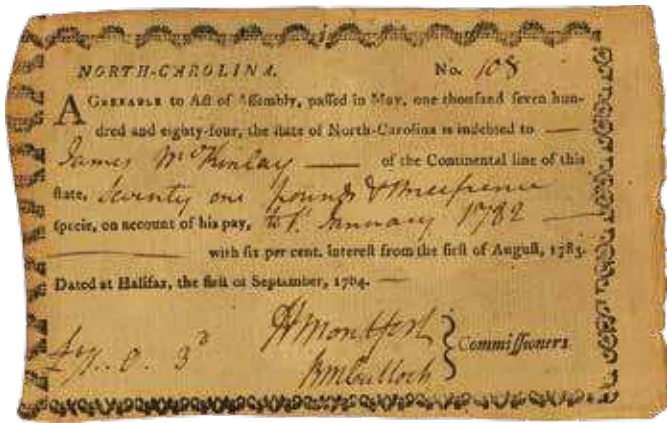 NORTH-CAROLINA. No. 108
AGREEABLE to Act of Assembly, paſſed in May, one thouſand ſeven hun-
dred and eighty-four, the ſtate of North-Carolina is indebted to —
James McKinlay — of the Continental line of this
ſtate, Seventy one pounds & three pence
ſpecie, on account of his pay, to 1st January 1782 —
— with ſix per cent. intereſt from the firſt of Auguſt, 1783.
Dated at Halifax, the firſt of September, 1784. —
HMontfort
£71. 0. 3d Commiſſioners
BMCulloch